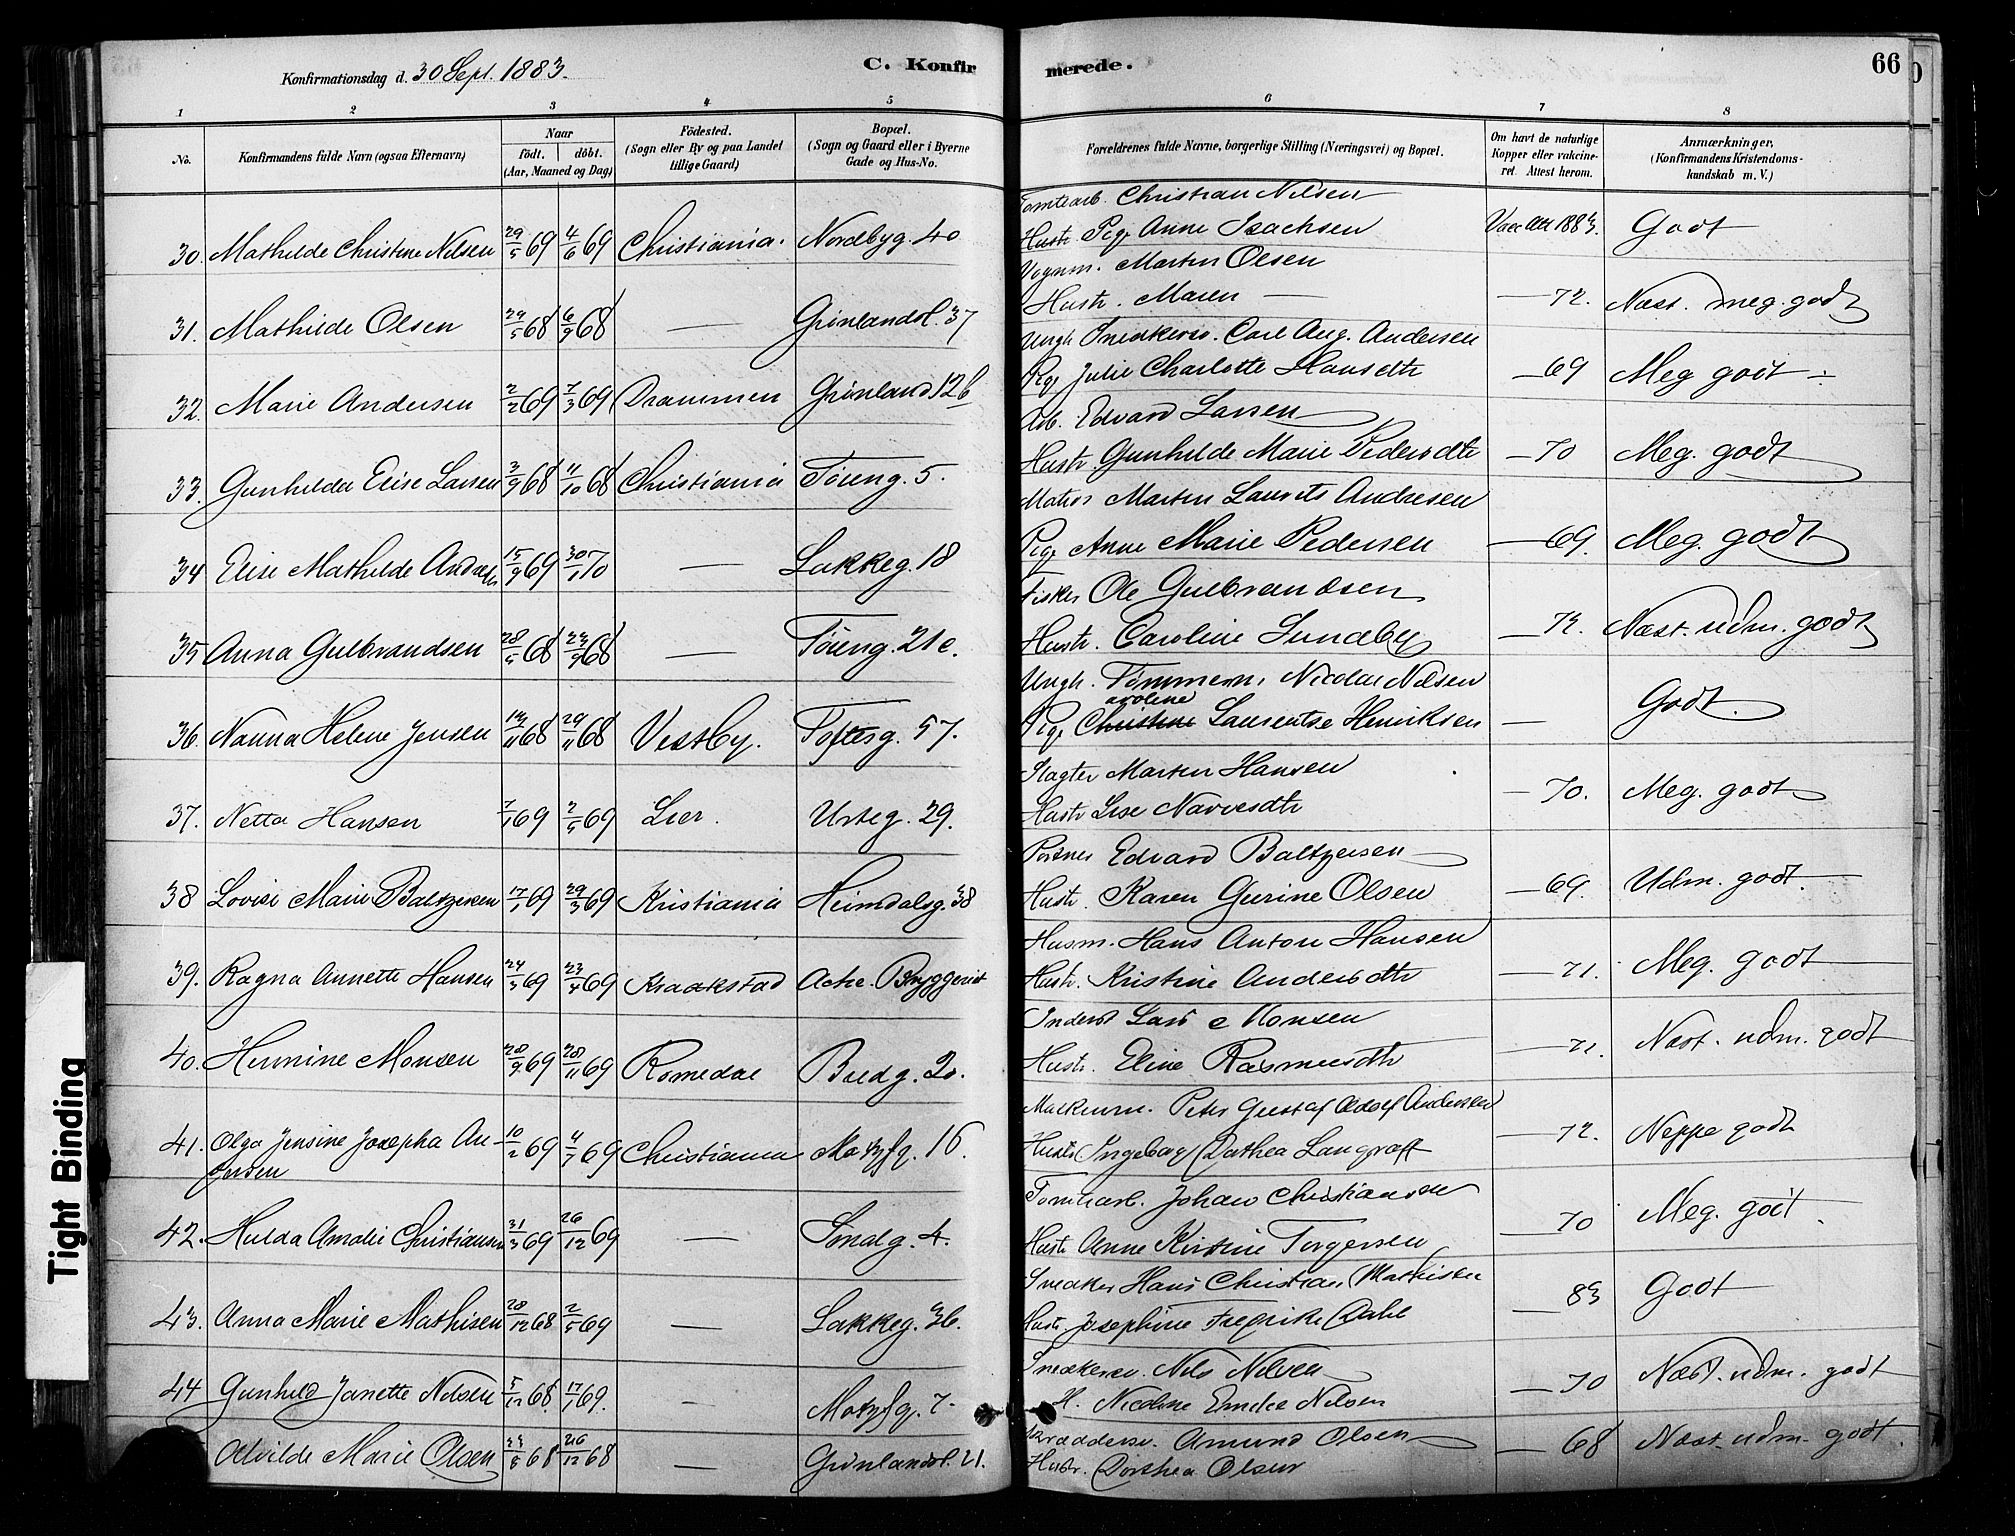 Konfirmationsdag d. 30 Sept. 1883.
C. Konfirmerede.
66
1 2 3 4 5 6 7 8
No.
Konfirmandens fulde Navn (ogsaa Efternavn)
Naar
født. døbt.
(Aar, Maaned og Dag)
Fødested.
(Sogn eller By og paa Landet
tillige Gaard)
Bopæl.
(Sogn og Gaard eller i Byerne
Gade og Hus-No.
Forældrenes fulde Navne, borgerlige Stilling (Næringsvei) og Bopæl.
Om havt de naturlige
Kopper eller vakcine-
ret. Attest herom.
Anmærkninger,
(Konfirmandens Kristendoms-
kundskab m. V.)
Tomtearb. Christian Nilsen
30. Mathilde Christine Nilsen 29/5 69 4/6 69 Christiania. Nordbyg. 40 Hustr. Pige Anne Isachsen Vacc Att 1883. Godt
Vognm. Martin Olsen
31. Mathilde Olsen 29/5 68 6/9 68 — Grönlandsl. 37 Hustr. Maren — — 72. Næst. meg. godt
Ungk Snedkersv. Carl Aug. Andersen
32. Marie Andersen 2/2 69 7/3 69 Drammen Grönland 12 b Pige Julie Charlotte Hansdtr — 69 Meg godt
Arb. Edvard Larsen
33. Gunhilda Elise Larsen 3/9 68 11/10 68 Christiania Töieng. 5. Hustr. Gunhilde Marie Pedersdtr — 70 Meg. godt
Matros Martin Laurits Andresen
34 Elise Mathilde 15/9 69 30/1 70 — Lakkeg. 18 Pige Anne Marie Pedersen — 69. Meg. godt
Fisker Ole Gulbrandsen
35 Anna Gulbrandsen 28/5 68 68 — Töieng. 21 c. Hustr. Caroline Sundby — 72. Næst. udm. godt
Ungk. Tömmerm. Nicolai Nilsen
aroline
36. Nanna Helene Jensen 68 29/11 68 Vestby. Toftesg. 57. Pige Christine Laurentse Henriksen — Godt.
Slagter Martin Hansen
37. Netta Hansen 69 2/5 69 Lier. Urteg. 29. Hustr Lise Narvesdtr — 70. Meg. godt
Portner Edvard Baltzersen
38 Lovise Marie Baltzersen 17/1 69 29/3 69 Kristiania Heimdalsg. 38 Hustr. Karen Gurine Olsen — 69. Udm. godt.
Husm. Hans Anton Hansen
39. Ragna Annette Hansen 24/3 69 69 Kraakstad Actie Bryggeriet Hustr. Kristine Andersdtr — 71. Meg. godt
Inderst Lars Monsen
40. Hermine Monsen 28/9 69 28/11 69 Romedal Bredg. 20. Hustr. Eline Rasmusdtr — 71. Næst. udm. godt
Peter Gustaf Adolf Andersen
41. Olga Jensine Josepha An- 10/2 69 4/7 69 Christiania Motzfg. 16. Hustr Ingeborg Dorthea Langraff — 72. Neppe godt
dersen
Tomtearb. Johan Christiansen
42. Hulda Amalie Christiansen 31/3 69 26/12 69 — Smalg. 4. Hustr Anne Kirstine Torgersen — 70 Meg. godt
Snedker Hans Christian Mathisen
43. Anna Marie Mathisen 28/12 68 2/5 69 — Lakkeg. 36. Hustr. Josephine Fredrikke Dahl — 83 Godt
Snedkersv. Nils Nilsen
44 Gunhild Janette Nilsen 5/12 68. 17/1 69. — Motzfg. 7. H. Nicoline Emelie Nilsen — 70 Næst. udm. godt
Skræddersv. Amund Olsen
Alvilde Marie Olsen 68 26/12 68 — Grönlandsl. 21. Hustr. Dorthea Olsen — 68 Næst. udm. godt
Tight Binding